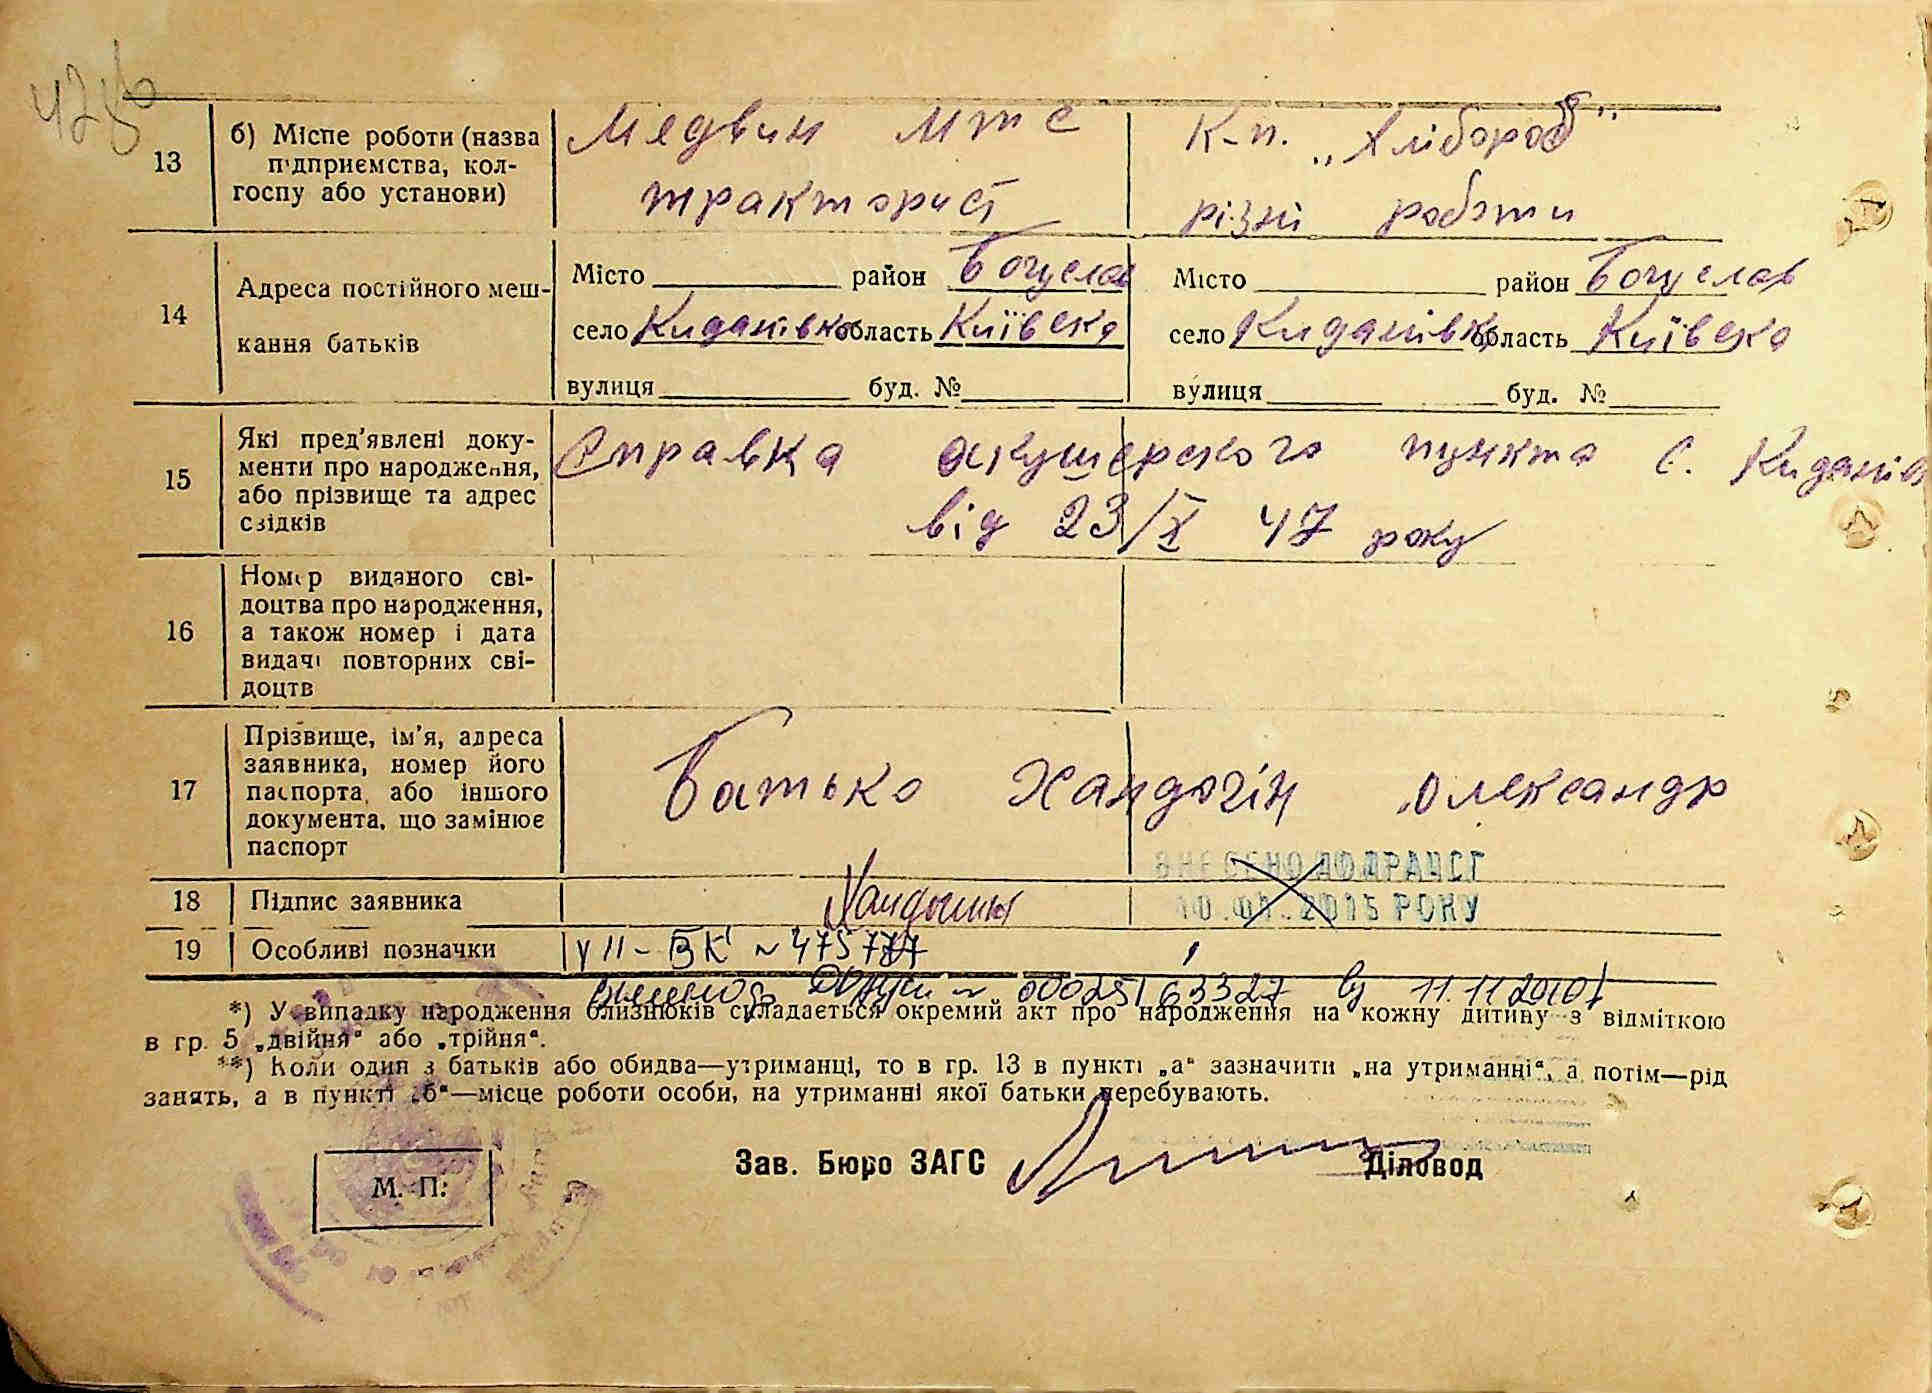 13
б) Місце роботи (назва
підприємства, кол-
госпу або установи)
Медвин мтс
тракторист
К-п. „Хлібороб"
різні роботи
14
Адреса постійного меш-
кання батьків
Місто район Богуслав
село Киданівка область Київська
вулиця буд. №
Місто район Богуслав
село Киданівка область Київська
вулиця буд. №
15
Які пред'явлені доку-
менти про народження,
або прізвище та адрес
свідків
Справка акушерского пункта с. Киданів
від 23/X 47 року
16
Номер виданого сві-
доцтва про народження,
а також номер і дата
видачі повторних сві-
доцтв
17
Прізвище, ім'я, адреса
заявника, номер його
паспорта або іншого
документа, що замінює
паспорт
Батько Хандогін Олександр
ВНЕСЕНО ДО ДРАЦСГ
2015 РОКУ
18 Підпис заявника
19 Особливі позначки VII - БК № 475777
00025163327 11.11.2010
*) У випадку народження близнюків складається окремий акт про народження на кожну дитину з відміткою
в гр. 5 „двійня" або „трійня".
**) Коли один з батьків або обидва—утриманці, то в гр. 13 в пункті „а" зазначити „на утриманні", а потім—рід
занять, а в пункті „б"—місце роботи особи, на утриманні якої батьки перебувають.
М. П.
Зав. Бюро ЗАГС Діловод